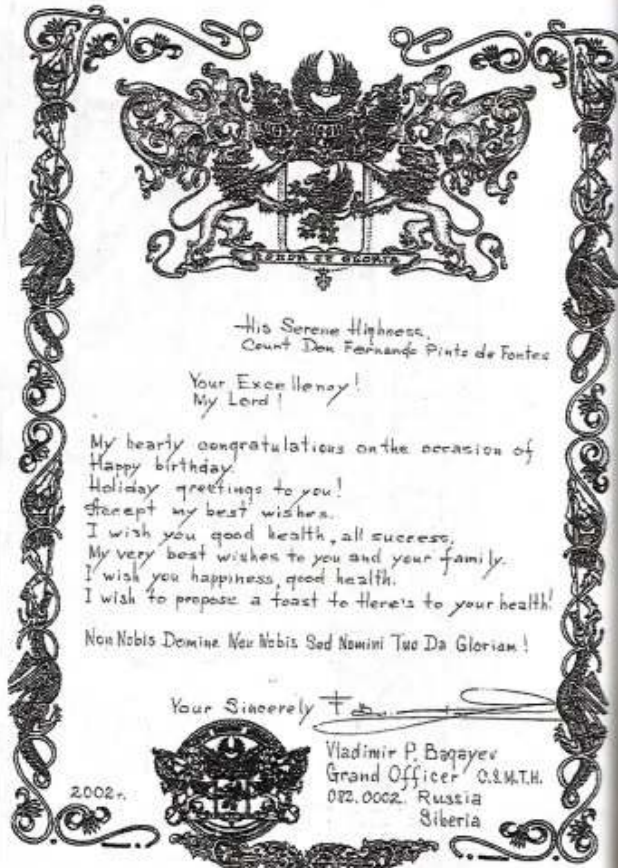 HONOR ET GLORIA
His Serene Highness,
Count Don Fernando Pinto de Fontes
Your Excellency!
My Lord!
My hearty congratulations on the occasion of
Happy birthday!
Holiday greetings to you!
Accept my best wishes.
I wish you good health, all success,
My very best wishes to you and your family.
I wish you happiness, good health.
I wish to propose a toast to Here's to your health!
Non Nobis Domine Non Nobis Sed Nomini Tuo Da Gloriam!
Your Sincerely
Vladimir P. Bagayev
Grand Officer O.S.M.T.H.
082.0002. Russia
Siberia
2002г.